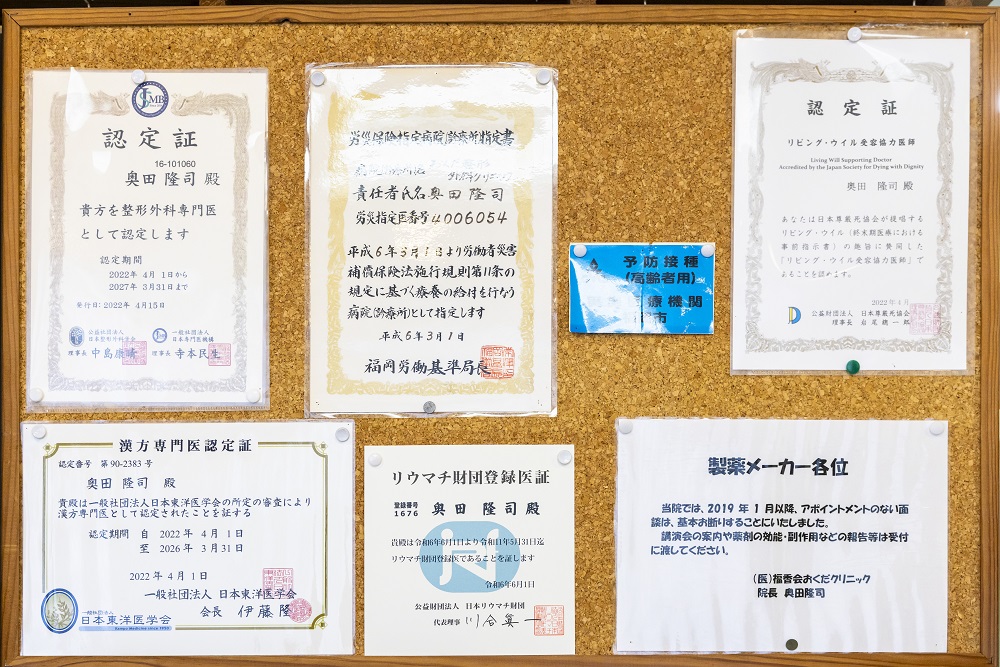 JMB
認定証
16-101060
奥田 隆司 殿
貴方を整形外科専門医
として認定します
認定期間
2022年 4月 1日から
2027年 3月31日まで
発行日:2022年 4月15日
公益社団法人
日本整形外科学会
理事長 中島康晴
一般社団法人
日本専門医機構
理事長 寺本民生
労災保険指定病院(診療所)指定書
外科クリニック
責任者氏名 奥田隆司
労災指定医番号 4006054
平成6年3月1日より労働者災害
補償保険法施行規則第11条の
規定に基づく療養の給付を行なう
病院(診療所)として指定します
平成6年3月1日
福岡労働基準局長
予防接種
(高齢者用)
療機関
市
認定証
リビング・ウイル受容協力医師
Living Will Supporting Doctor
Accredited by the Japan Society for Dying with Dignity
奥田 隆司 殿
あなたは日本尊厳死協会が提唱する
リビング・ウイル(終末期医療における
事前指示書)の趣旨に賛同した
「リビング・ウイル受容協力医師」で
あることを認めます。
2022年4月
公益財団法人 日本尊厳死協会
理事長 岩尾總一郎
漢方専門医認定証
認定番号 第90-2383号
奥田 隆司 殿
貴殿は一般社団法人日本東洋医学会の所定の審査により
漢方専門医として認定されたことを証する
認定期間 自 2022年 4月 1日
至 2026年 3月31日
2022年 4月 1日
一般社団法人 日本東洋医学会
会長 伊藤 隆
一般社団法人
日本東洋医学会
Kampo Medicine since 1950
リウマチ財団登録医証
登録番号
1676
奥田 隆司 殿
貴殿は令和6年6月1日より令和11年5月31日迄
リウマチ財団登録医であることを証します
令和6年6月1日
公益財団法人 日本リウマチ財団
代表理事 川合眞一
製薬メーカー各位
当院では、2019 年 1 月以降、アポイントメントのない面
談は、基本お断りすることにいたしました。
講演会の案内や薬剤の効能・副作用などの報告等は受付
に渡してください。
(医)福香会おくだクリニック
院長 奥田隆司